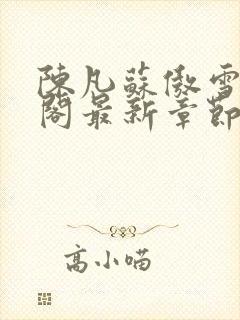 陳凡蘇傲雪
閣最新章節
高小喵